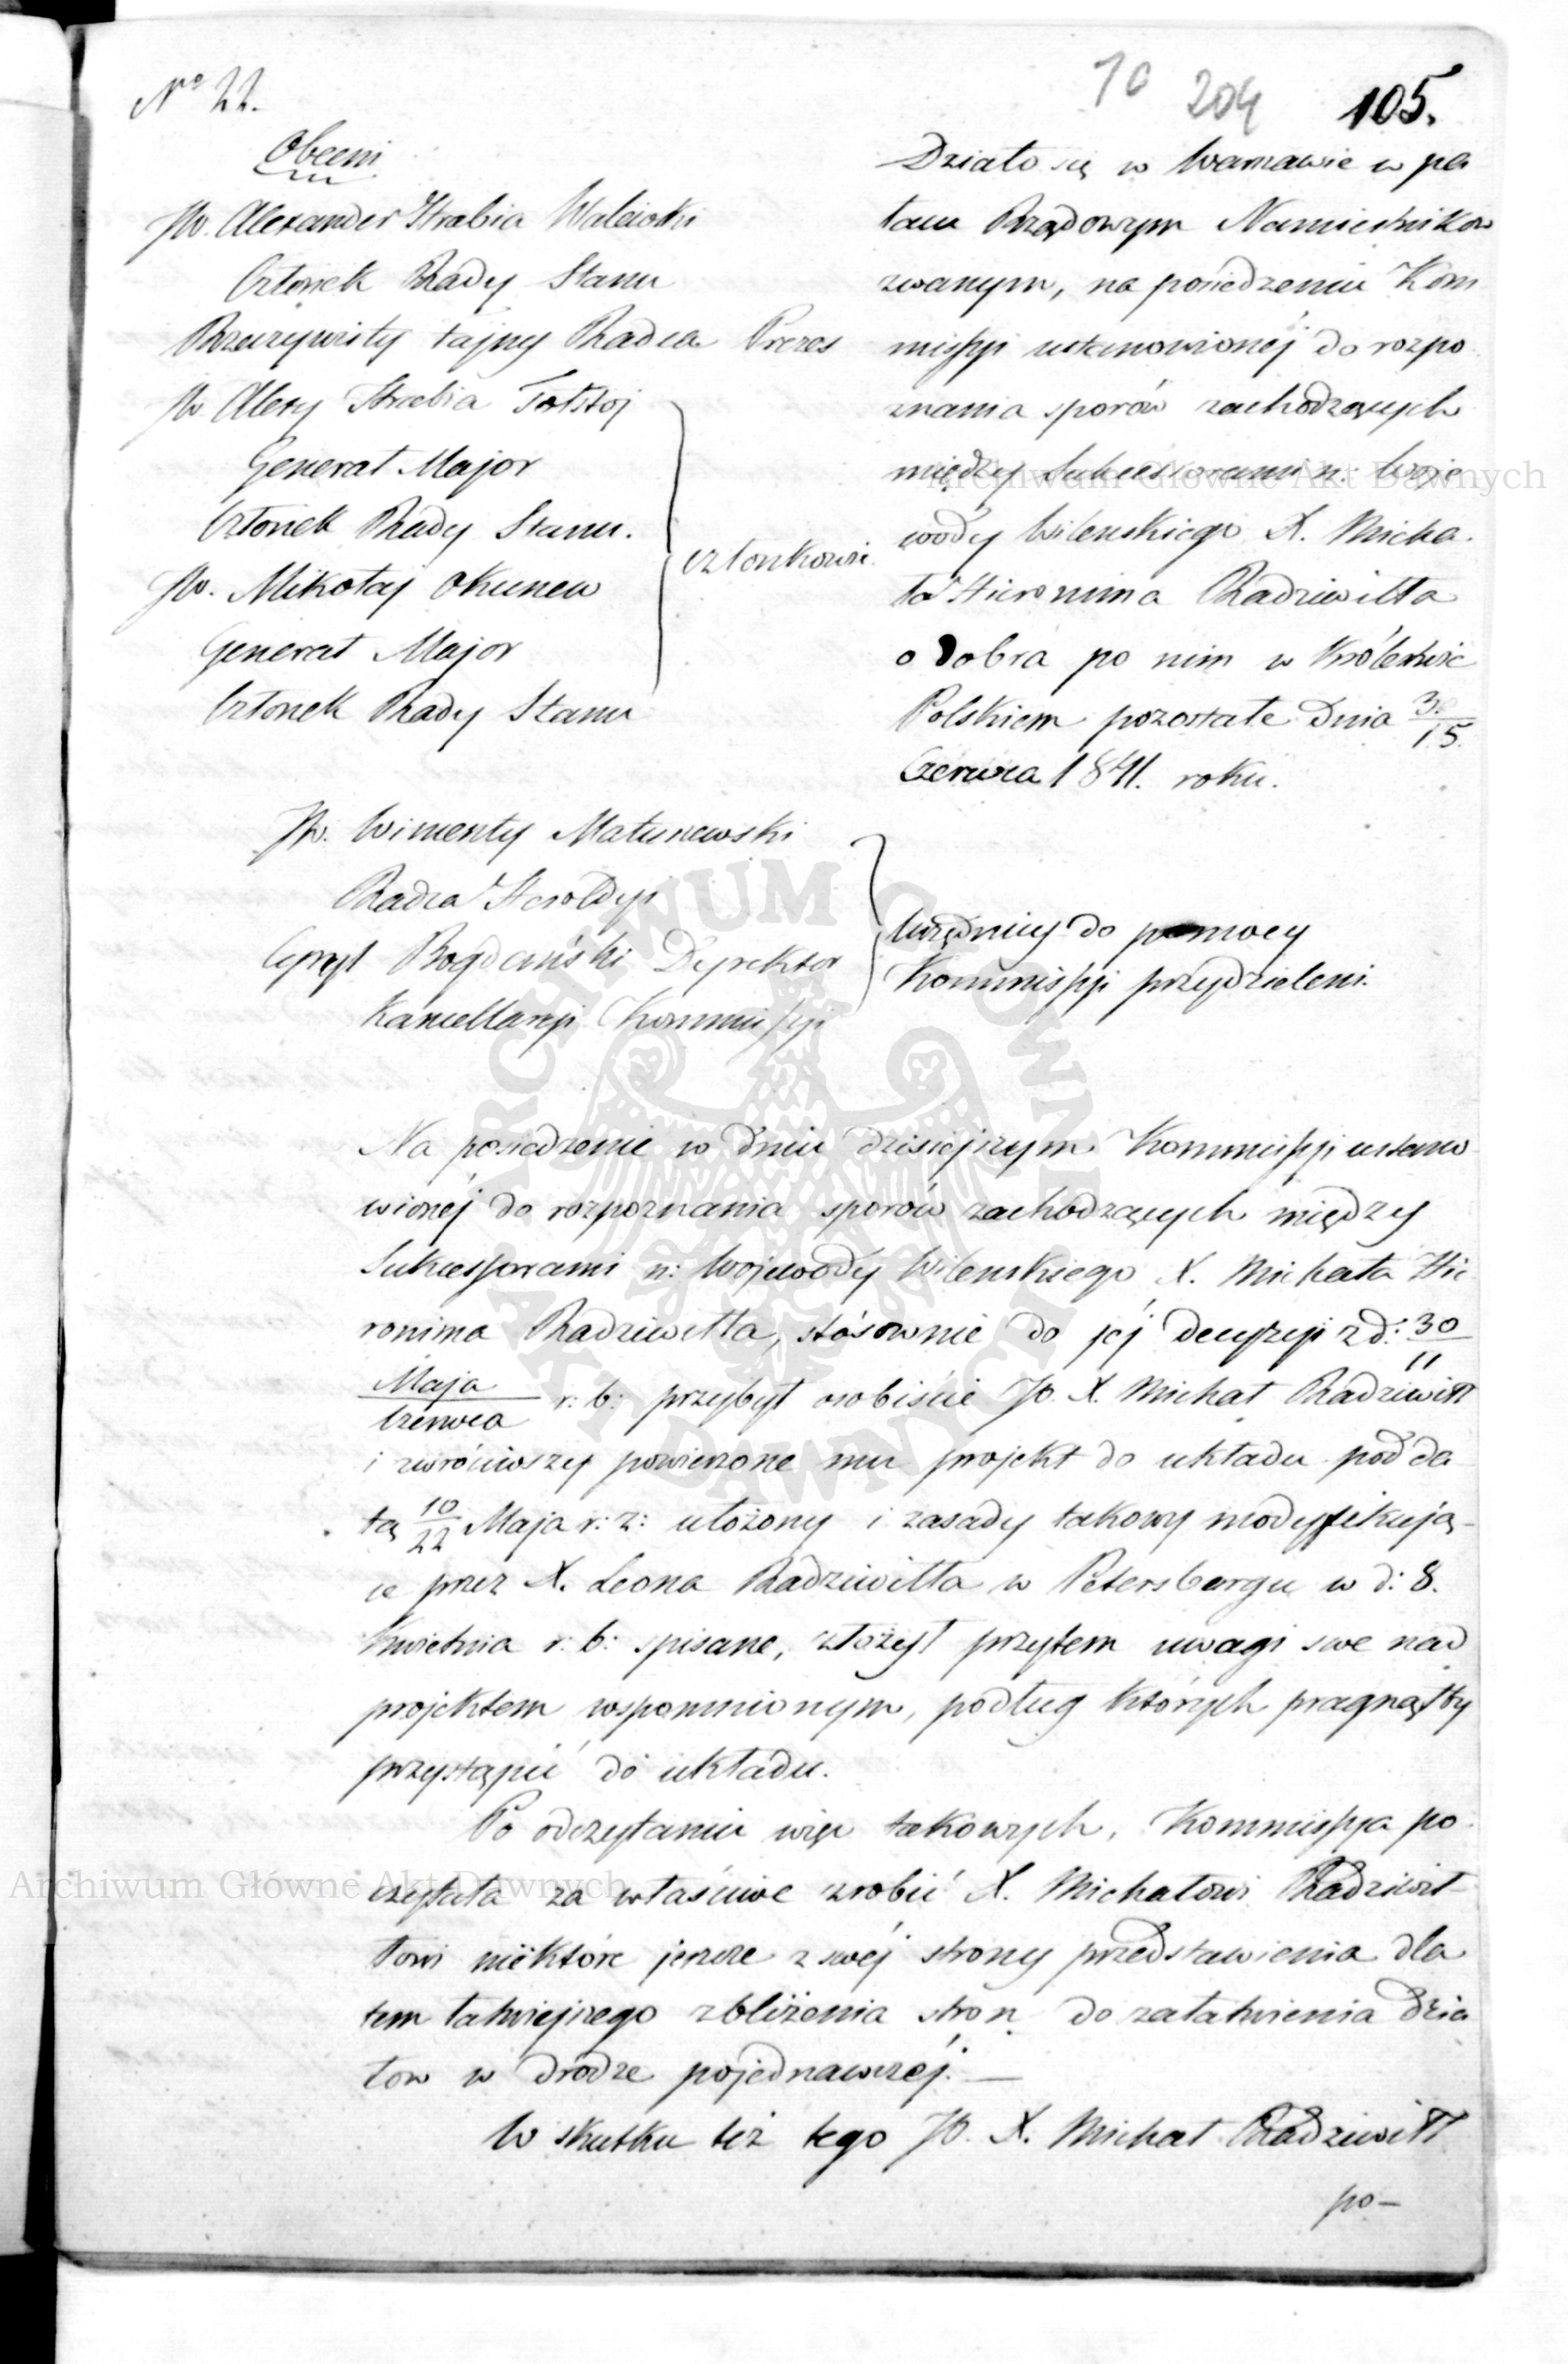 No 22.
70 204 105.
Obecni
JW. Alexander Hrabia Walewski
Członek Rady Stanu
Rzeczywisty tajny Radca Prezes
JW. Alexy Hrabia Tołstoj
Generał Major
Członek Rady Stanu.
JW. Mikołaj Okunew
Generał Major
Członek Rady Stanu
członkowie.
Działo się w Warszawie w pa
łacu Rządowym Namiestników
zwanym, na posiedzeniu Kom
missyi ustanowionéj do rozpo
znania sporów zachodzących
między Sukcessorami n: Woje
wody Wilenskiego X. Micha
ła Hieronima Radziwiłła
o dobra po nim w Królestwie
Polskiem pozostałe Dnia 3/15.
Czerwca 1841. roku.
JW. Wincenty Matuszewski
Radca Heroldyi
Cypryl Bogdański Dyrektor
Kancellaryi Kommissyi
Urzędnicy do pomocy
Kommissyi przydzieleni.
Na posiedzenie w dniu dzisiejszym Kommissyi ustano
wionéj do rozpoznania sporów zachodzących między
Sukcessorami n: Wojewody Wilenskiego X. Michała Hie
ronima Radziwiłła, stósownie do jéj decyzyi z d: 30/11
Maja/Czerwca r: b: przybył osobiście JO. X. Michał Radziwiłł
i zwróciwszy powierzone mu projekt do układu pod da
tą 10/22 Maja r: z: ułożony i zasady takowy modyfikują-
ce przez X. Leona Radziwiłła w Petersburgu w d: 8.
Kwietnia r: b: spisane, złożył przytem uwagi swe nad
projektem wspomnionym, podług których pragnąłby
przystąpić do układu.
Po odczytaniu więc takowych, Kommissya po
czytała za właściwe zrobić X. Michałowi Radziwił-
łowi niektóre jeszcze z swéj strony przedstawienia dla
tem łatwiejszego zbliżenia stron do załatwienia dzia
łow w drodze pojednawczéj.—
W skutku téż tego JO. X. Michał Radziwiłł
po-
Archiwum Główne Akt Dawnych
Archiwum Główne Akt Dawnych
ARCHIWUM GŁÓWNE AKT DAWNYCH